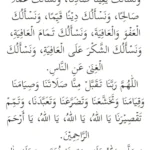 صَالِحًا، وَنَسْأَلُكَ دِيْنًا قَيِّمًا، وَنَسْأَلُكَ
الْعَفْوَ وَالْعَافِيَةَ، وَنَسْأَلُكَ تَمَامَ الْعَافِيَةِ،
وَنَسْأَلُكَ الشُّكْرَ عَلَى الْعَافِيَةِ، وَنَسْأَلُكَ
الْغِنَى عَنِ النَّاسِ.
اَللّٰهُمَّ رَبَّنَا تَقَبَّلْ مِنَّا صَلَاتَنَا وَصِيَامَنَا
وَقِيَامَنَا وَتَخَشُّعَنَا وَتَضَرُّعَنَا وَتَعَبُّدَنَا، وَتَمِّمْ
تَقْصِيْرَنَا يَا اَللهُ، يَا اَللهُ، يَا اَللهُ، يَا أَرْحَمَ
الرَّاحِمِيْنَ.